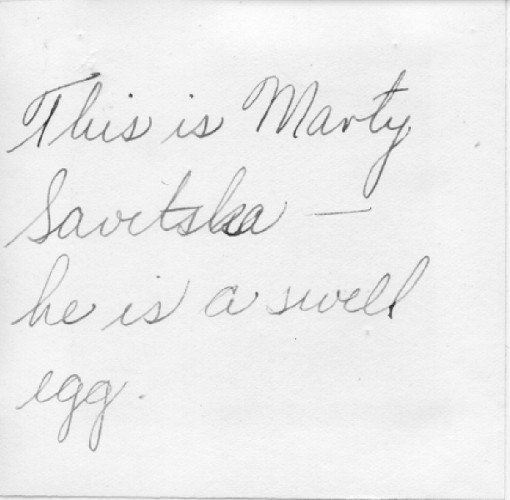 This is Marty
Savitska —
he is a swell
egg.